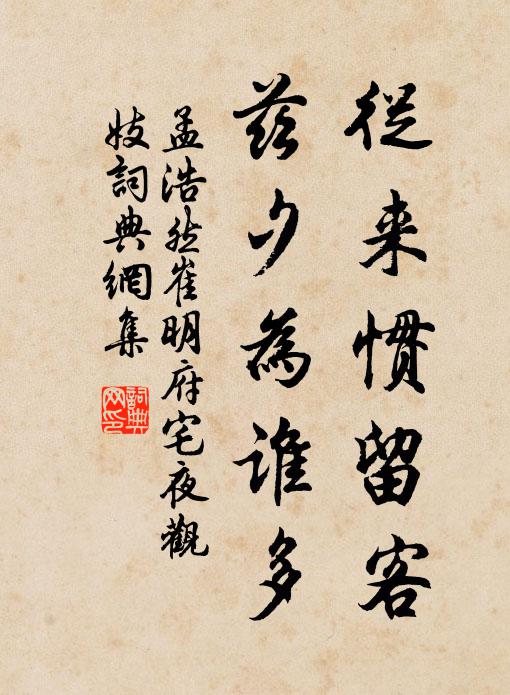 從来慣留客
茲夕為誰多
孟浩然崔明府宅夜觀
妓詞典網集
詞典
网印